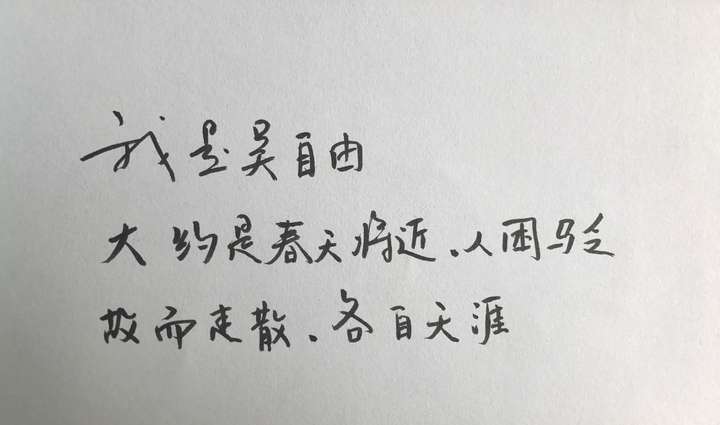 我是吴自由
大约是春天将近、人困马乏
故而走散、各自天涯